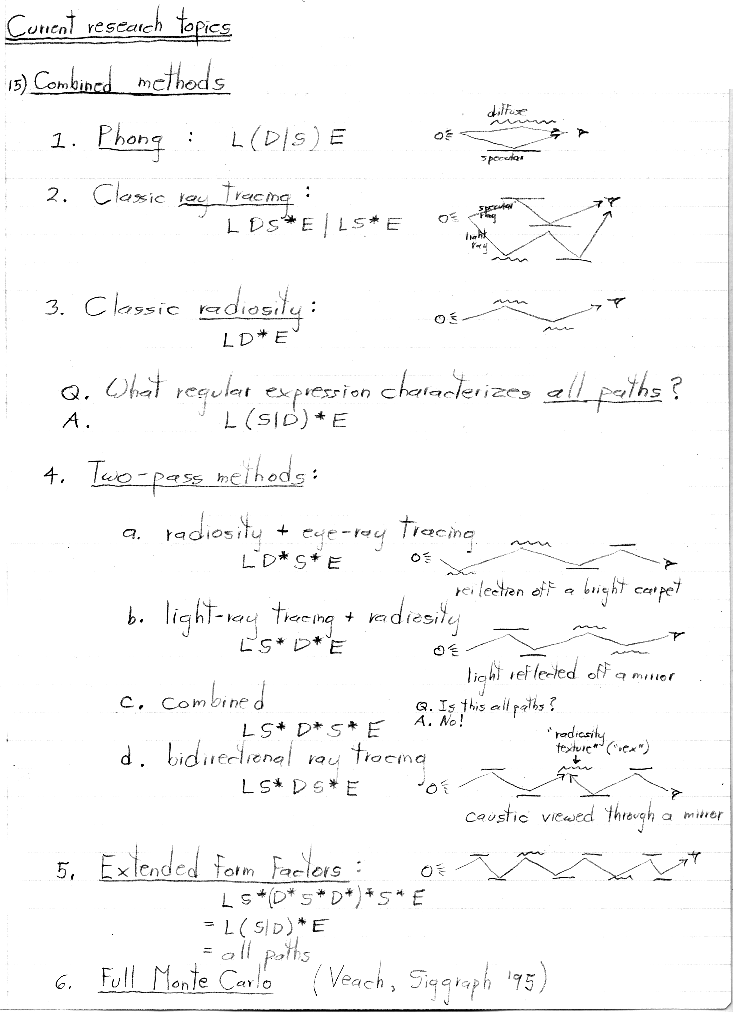 Current research topics
15) Combined methods
1. Phong : L(D|S)E
diffuse
specular
2. Classic ray tracing :
LDS*E | LS*E
specular
ray
light
ray
3. Classic radiosity :
LD*E
Q. What regular expression characterizes all paths?
A. L(S|D)*E
4. Two-pass methods :
a. radiosity + eye-ray tracing
LD*S*E
reflection off a bright carpet
b. light-ray tracing + radiosity
LS*D*E
light reflected off a mirror
c. combined
LS*D*S*E
Q. Is this all paths?
A. No!
d. bidirectional ray tracing
LS*DS*E
"radiosity
texture" ("rex")
caustic viewed through a mirror
5. Extended Form Factors :
LS*(D*S*D*)*S*E
= L(S|D)*E
= all paths
6. Full Monte Carlo (Veach, Siggraph '95)